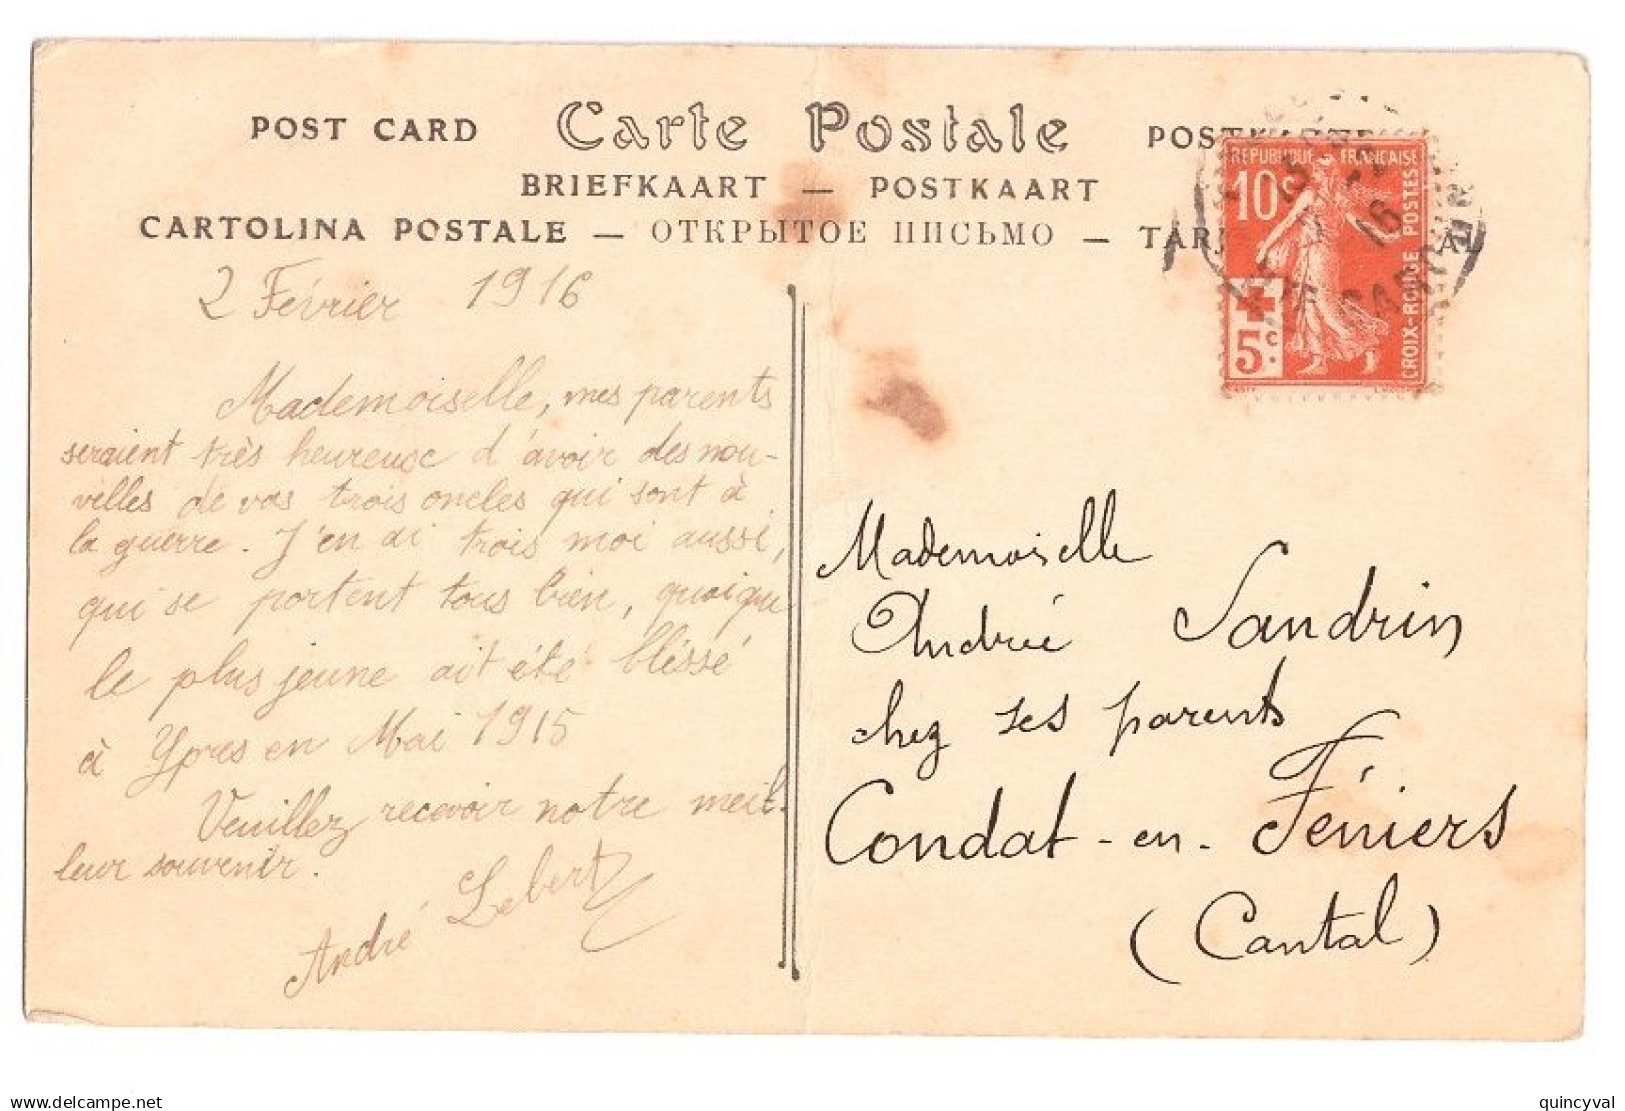 POST CARD Carte Postale
BRIEFKAART — POSTKAART
CARTOLINA POSTALE — ОТКРЫТОЕ ПИСЬМО —
RÉPUBLIQUE FRANÇAISE
10c
POSTES
CROIX-ROUGE
5c
16
2 Février 1916
Mademoiselle, mes parents
seraient très heureuse d'avoir des nou-
velles de vos trois oncles qui sont à
la guerre. J'en ai trois moi aussi,
qui se portent tous bien, quoique
le plus jeune ait été bléssé
à Ypres en Mai 1915
Veuillez recevoir notre meil-
leur souvenir.
André Lebert
Mademoiselle
Andrée Sandrin
chez ses parents
Condat-en-Féniers
(Cantal)
delcampe.net
quincyval